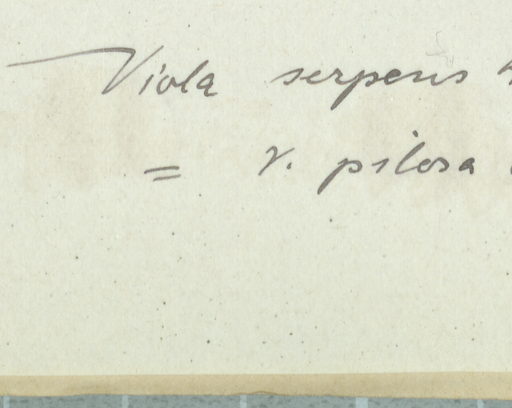 Viola serpens
= V. pilosa